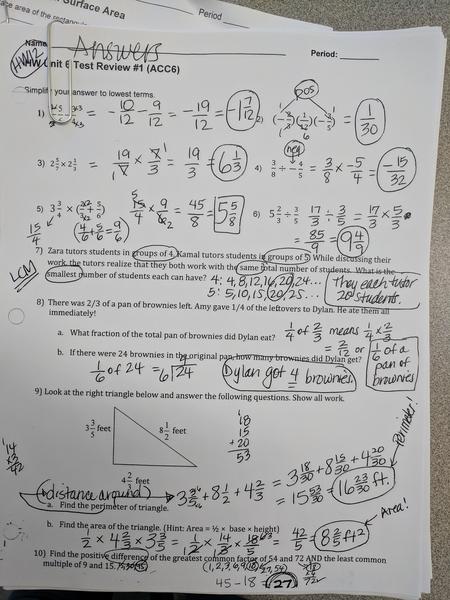 Surface Area
Period
Name Answers Period:
HW12
HW Unit 6 Test Review #1 (ACC6)
Simplify your answer to lowest terms.
1) = -10/12 - 9/12 = -19/12 = -1 7/12
2) pos = 1/30
3) 2 5/7 x 2 1/3 = 19/7 x 7/3 = 19/3 = 6 1/3
4) neg 3/8 ÷ -4/5 = 3/8 x -5/4 = -15/32
5) 3 3/4 x (2/3 + 5/6) 15/4 x 9/6 = 45/8 = 5 5/8
15/4 (4/6 + 5/6 = 9/6)
6) 5 2/3 ÷ 3/5 17/3 ÷ 3/5 = 17/3 x 5/3
= 85/9 = 9 4/9
7) Zara tutors students in groups of 4. Kamal tutors students in groups of 5. While discussing
their work, the tutors realize that they both work with the same total number of students. What is the
smallest number of students each can have? 4: 4, 8, 12, 16, 20, 24...
LCM
5: 5, 10, 15, 20, 25...
they each tutor
20 students.
8) There was 2/3 of a pan of brownies left. Amy gave 1/4 of the leftovers to Dylan. He ate them all
immediately!
a. What fraction of the total pan of brownies did Dylan eat? 1/4 of 2/3 means 1/4 x 2/3
= 2/12 or 1/6 of a pan of brownies
b. If there were 24 brownies in the original pan, how many brownies did Dylan get?
1/6 of 24 = 6⟌24 4 Dylan got 4 brownies.
9) Look at the right triangle below and answer the following questions. Show all work.
3 3/5 feet
8 1/2 feet
4 2/3 feet
18
15
+ 20
53
14
x 3
42
(distance around) 3 3/5 + 8 1/2 + 4 2/3 = 3 18/30 + 8 15/30 + 4 20/30
= 15 53/30 = 16 23/30 ft.
Perimeter!
a. Find the perimeter of triangle.
b. Find the area of the triangle. (Hint: Area = ½ × base × height)
1/2 x 4 2/3 x 3 3/5 = 1/2 x 14/3 x 18/5 = 42/5 = 8 2/5 ft²
Area!
10) Find the positive difference of the greatest common factor of 54 and 72 AND the least common
multiple of 9 and 15.
45 - 18 = 27